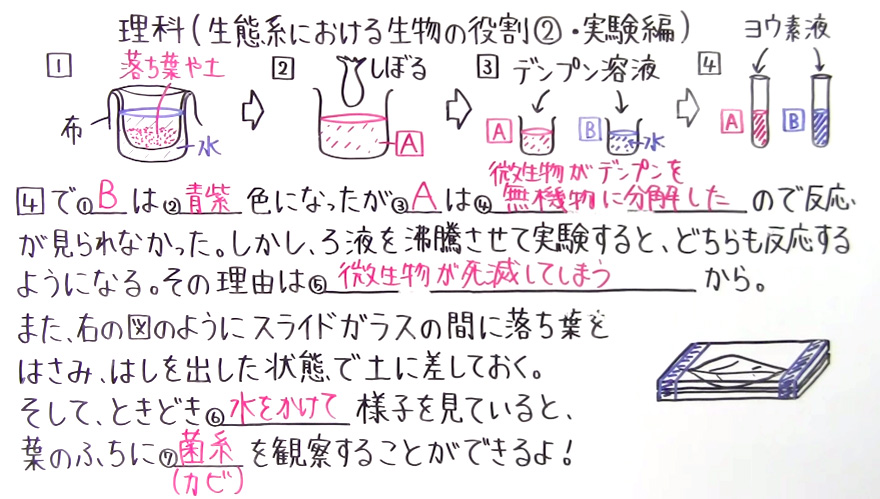 理科(生態系における生物の役割②・実験編)
ヨウ素液
1 落ち葉や土
2 しぼる
3 デンプン溶液
4
布
水
A
A
B
水
A
B
4で①Bは②青紫色になったが③Aは④微生物がデンプンを無機物に分解したので反応
が見られなかった。しかし、ろ液を沸騰させて実験すると、どちらも反応する
ようになる。その理由は⑤微生物が死滅してしまうから。
また、右の図のようにスライドガラスの間に落ち葉を
はさみ、はしを出した状態で土に差しておく。
そして、ときどき⑥水をかけて様子を見ていると、
葉のふちに⑦菌糸を観察することができるよ!
(カビ)